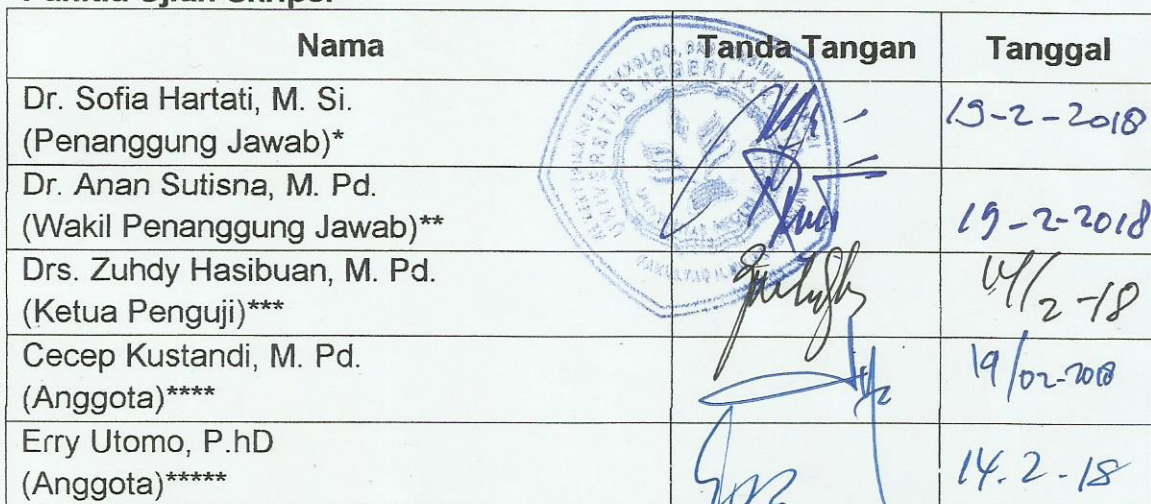 Panitia Ujian Skripsi
Nama Tanda Tangan Tanggal
Dr. Sofia Hartati, M. Si.
(Penanggung Jawab)* 19-2-2018
Dr. Anan Sutisna, M. Pd.
(Wakil Penanggung Jawab)** 19-2-2018
Drs. Zuhdy Hasibuan, M. Pd.
(Ketua Penguji)*** 14/2-18
Cecep Kustandi, M. Pd.
(Anggota)**** 19/02-2018
Erry Utomo, P.hD
(Anggota)***** 14.2-18
UNIVERSITAS NEGERI JAKARTA